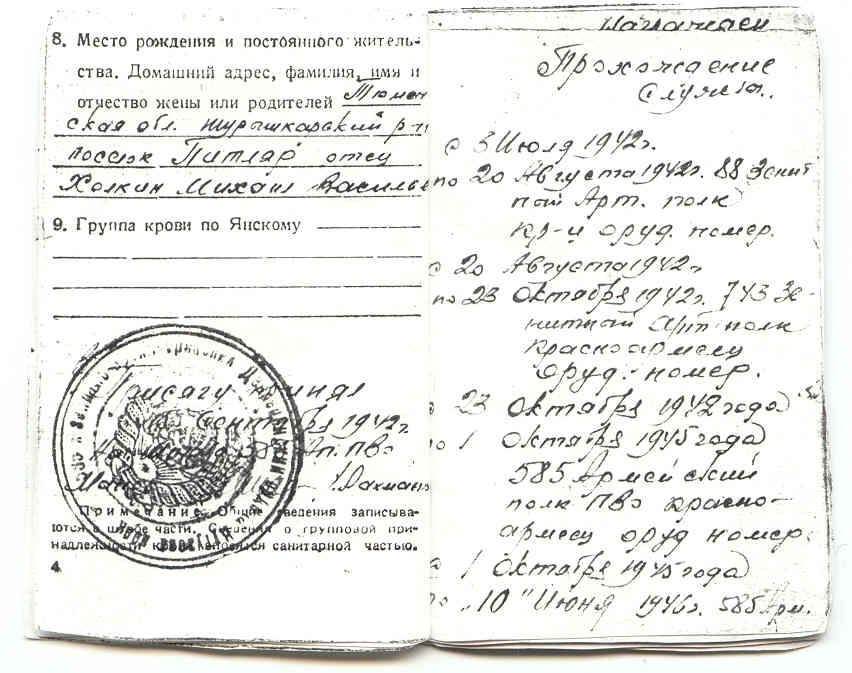 8. Место рождения и постоянного житель-
ства. Домашний адрес, фамилия, имя и
отчество жены или родителей Тюмен
ская обл. Шурышкарский р-н
поселк Питляр отец
Холкин Михаил Василье
9. Группа крови по Янскому
Присягу принял
Сентября 1942г
585 ап. ПВО
Примечание. Общие сведения записыва-
ются в штабе части. Сведения о групповой при-
надлежности крови заносятся санитарной частью.
4
Прохождение
службы.
с 3 Июля 1942г.
по 20 Августа 1942г. 88 Зенит
ный Арт. полк
кр-ц оруд. номер.
с 20 Августа 1942г
по 23 Октября 1942г. 743 Зе-
нитный Арт. полк
красноармеец
оруд. номер.
с 23 Октября 1942 года
по 1 Октября 1945 года
585 Армейский
полк ПВО красно-
армеец оруд номер.
с 1 Октября 1945 года
по "10" Июня 1946г. 585 Арм.